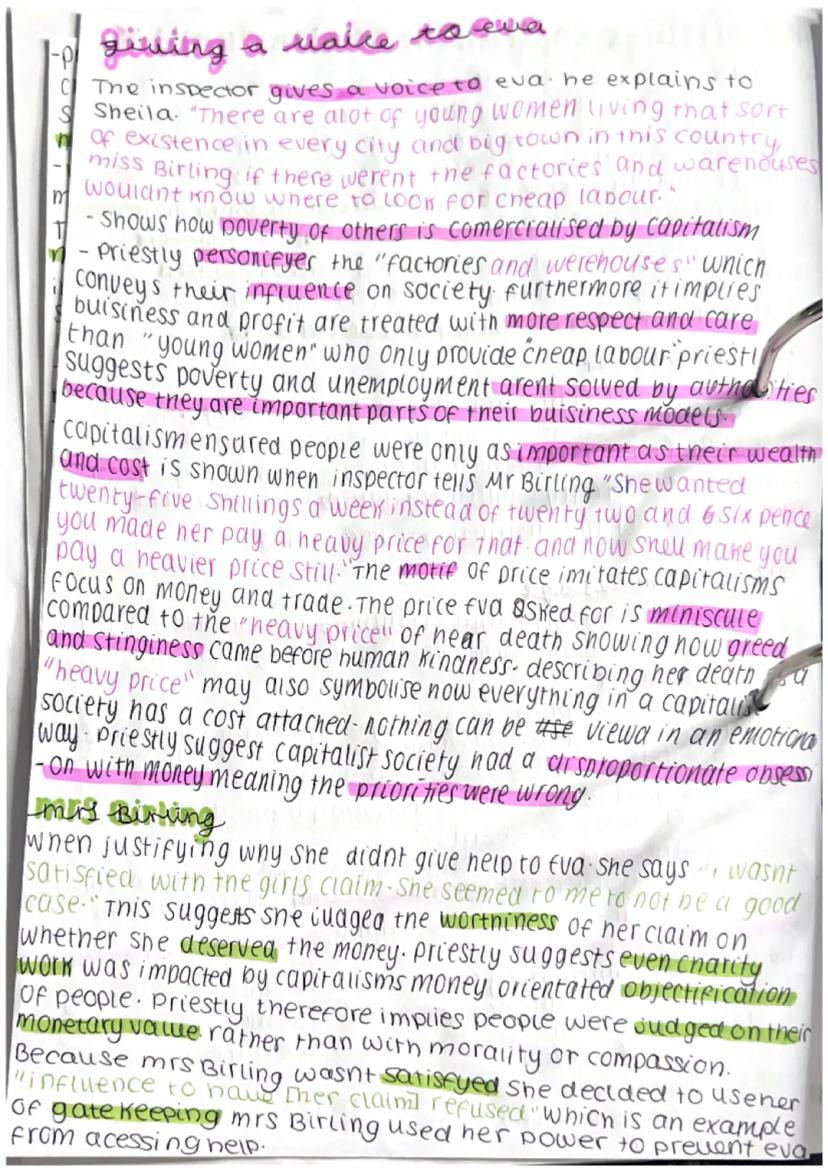 giving a voice to eva
The inspector gives a voice to eva. he explains to
Sheila. "There are alot of young women living that sort
of existence in every city and big town in this country,
miss Birling. if there werent the factories and warehouses
wouldnt know where to look for cheap labour."
- shows how poverty of others is comercialised by capitalism
- priestly personifyes the "factories and werehouses" which
conveys their influence on society. furthermore it implies
buisiness and profit are treated with more respect and care
than "young women" who only provide "cheap labour" priestl
suggests poverty and unemployment arent solved by autho ities
because they are important parts of their buisiness models.
capitalism ensured people were only as important as their wealth
and cost is shown when inspector tells Mr Birling "She wanted
twenty-five shillings a week instead of twenty two and 6 six pence
you made her pay a heavy price for that. and now shell make you
pay a heavier price still." The motif of price imitates capitalisms
focus on money and trade. The price Eva asked for is miniscule
compared to the "heavy price" of hear death showing how greed
and stinginess came before human kindness. describing her death a
"heavy price" may also symbolise how everything in a capitalis
society has a cost attached - nothing can be viewd in an emotiona
way. priestly suggest capitalist society had a disproportionate obsessi
-on with money meaning the priorities were wrong.
mrs Birling
when justifying why she didnt give help to Eva. she says "i wasnt
satisfied with the girls claim. she seemed to me to not be a good
case." This suggests she judged the worthiness of her claim on
whether she deserved the money. priestly suggests even charity
work was impacted by capitalisms money orientated objectification
of people. priestly therefore implies people were judged on their
monetary value rather than with morality or compassion.
Because mrs Birling wasnt satisfyed she decided to use her
"influence to have [her claim] refused" which is an example
of gate keeping mrs Birling used her power to prevent eva
from acessing help.